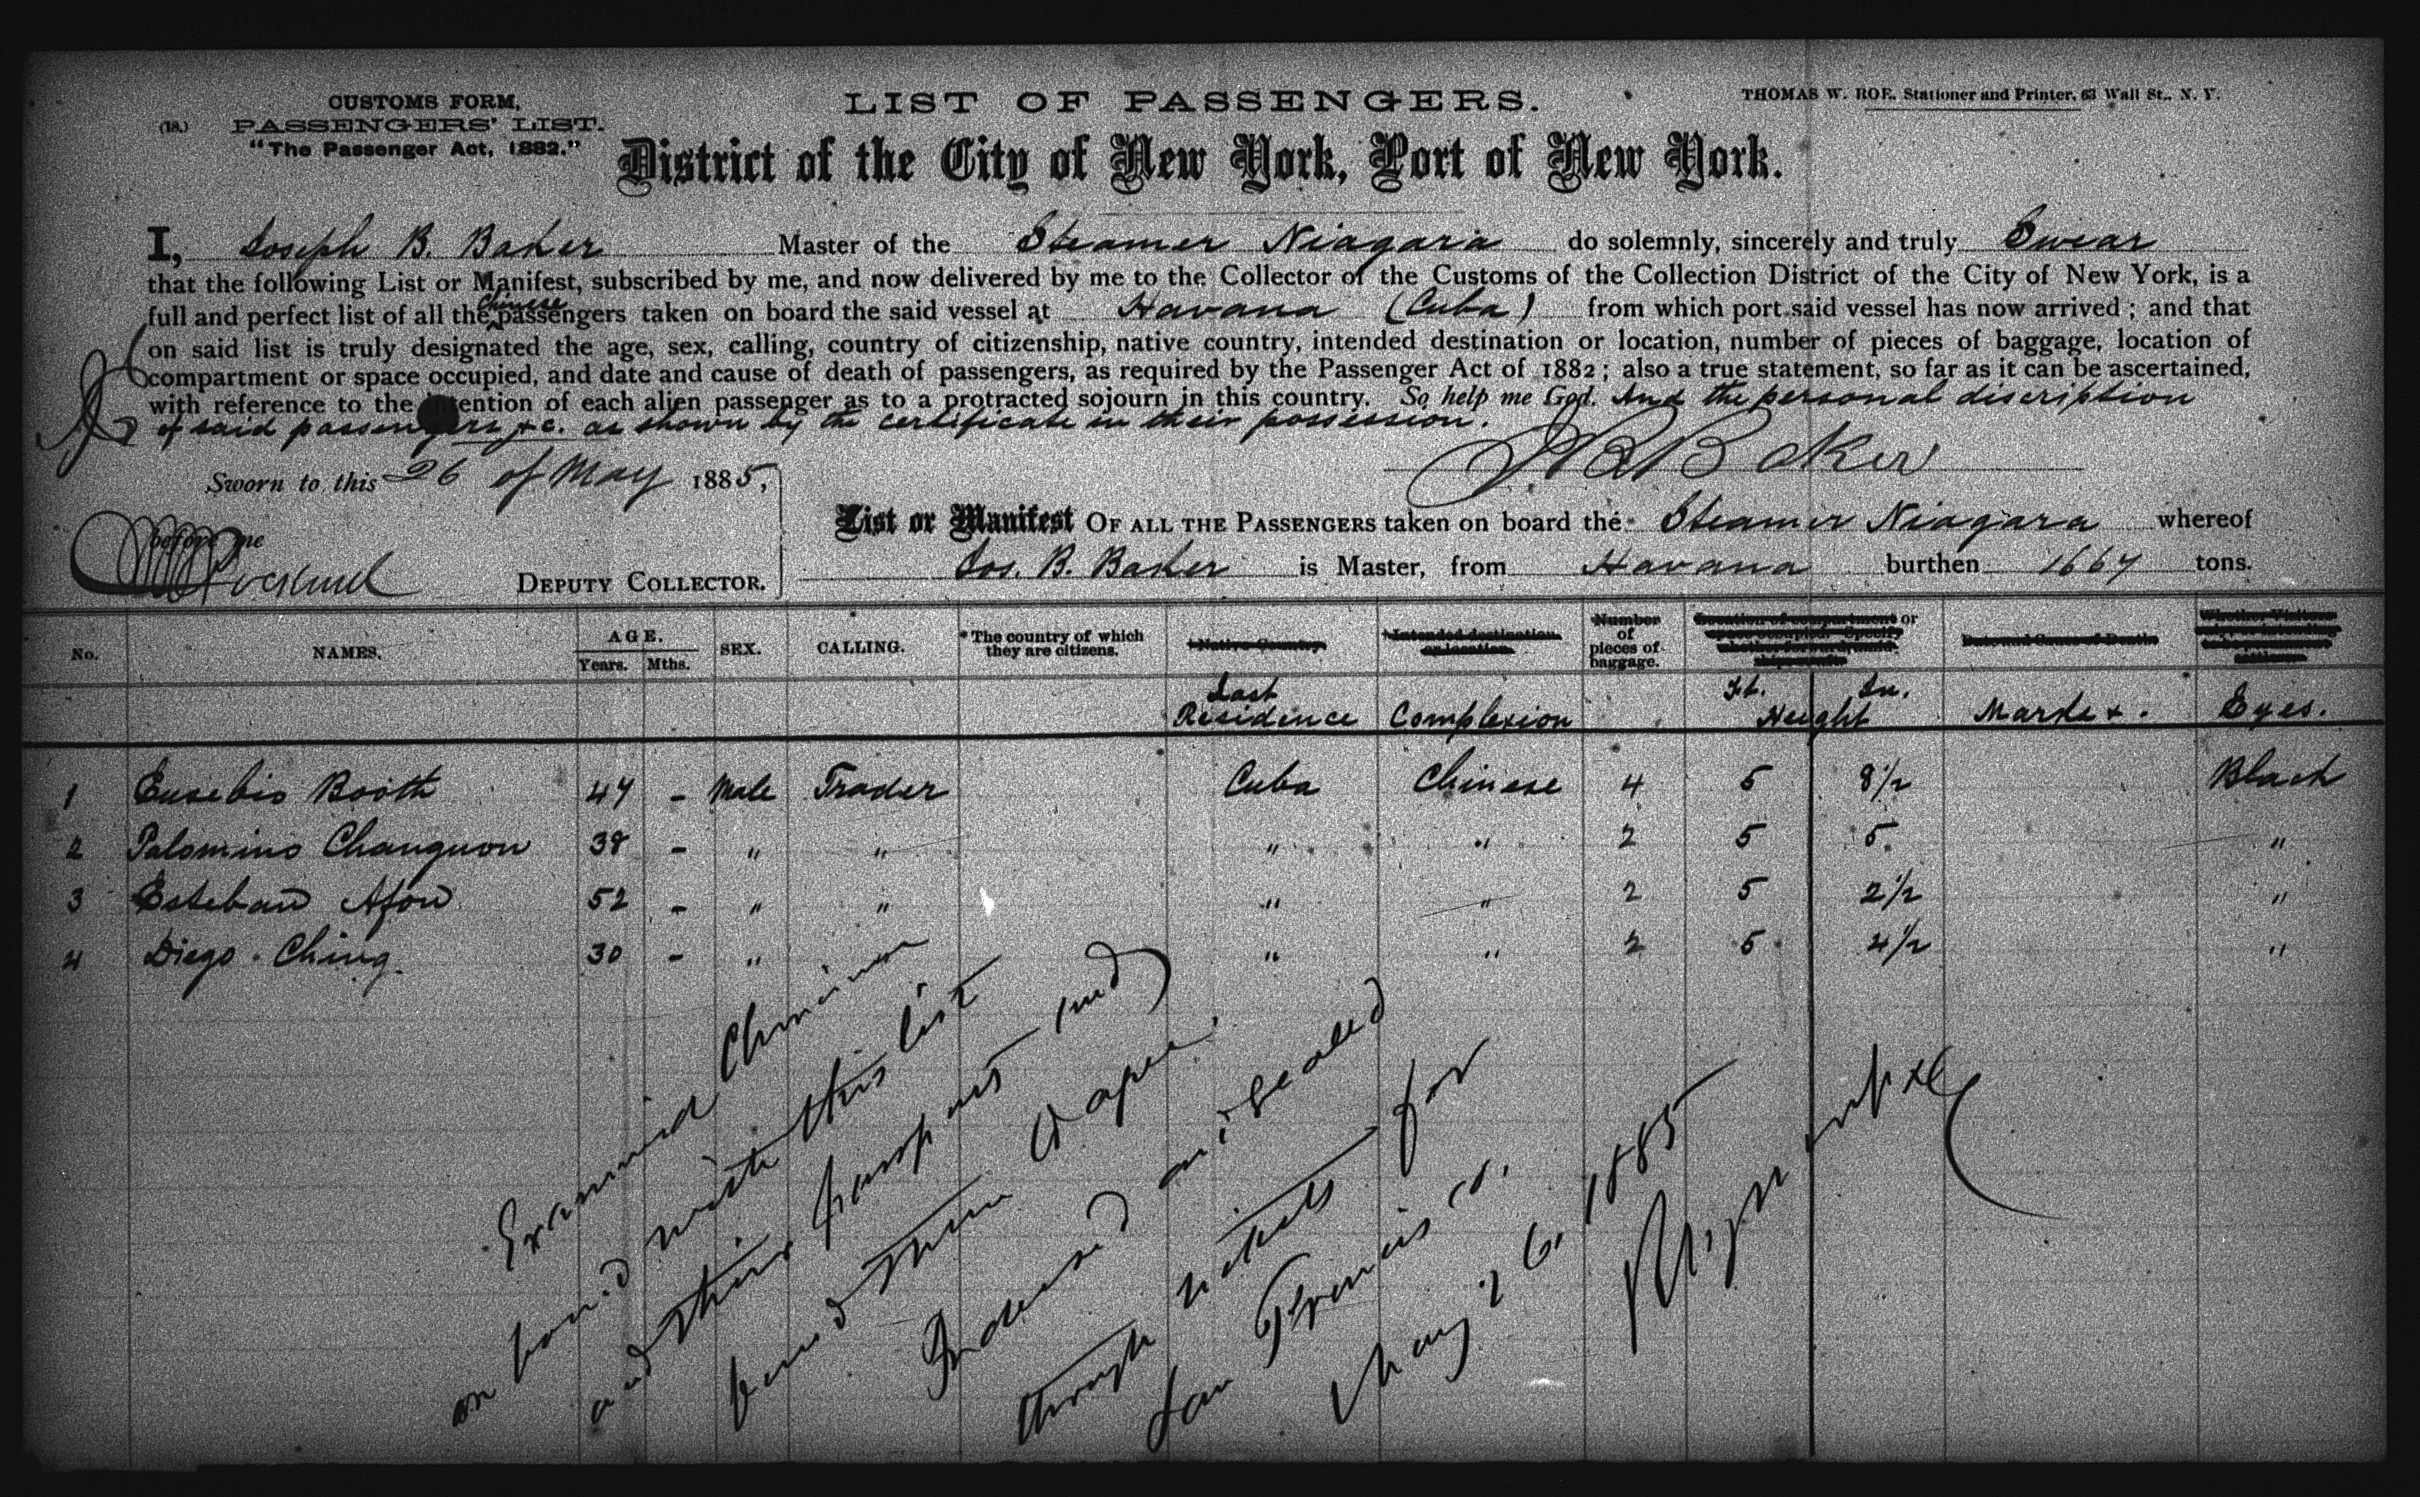 CUSTOMS FORM,
(18.) PASSENGERS' LIST.
"The Passenger Act, 1882."
LIST OF PASSENGERS.
THOMAS W. ROE, Stationer and Printer, 63 Wall St., N. Y.
District of the City of New York, Port of New York.
I, Joseph B. Baker Master of the Steamer Niagara do solemnly, sincerely and truly Swear
that the following List or Manifest, subscribed by me, and now delivered by me to the Collector of the Customs of the Collection District of the City of New York, is a
full and perfect list of all the Chinese passengers taken on board the said vessel at Havana (Cuba) from which port said vessel has now arrived; and that
on said list is truly designated the age, sex, calling, country of citizenship, native country, intended destination or location, number of pieces of baggage, location of
compartment or space occupied, and date and cause of death of passengers, as required by the Passenger Act of 1882; also a true statement, so far as it can be ascertained,
with reference to the intention of each alien passenger as to a protracted sojourn in this country. So help me God. And the personal discription
of said passengers &c. as shown by the certificate in their possession.
J B Baker
Sworn to this 26 of May 1885,
before me
DEPUTY COLLECTOR.
List or Manifest OF ALL THE PASSENGERS taken on board the Steamer Niagara whereof
Jos. B. Baker is Master, from Havana burthen 1667 tons.
No. NAMES. AGE. Years. Mths. SEX. CALLING. *The country of which they are citizens. Native Country. Intended destination or location. Number of pieces of baggage. Location of compartment or space occupied. Date and Cause of Death
Last Residence Complexion Ft. In. Height Marks &. Eyes.
1 Eusebio Booth 47 - Male Trader Cuba Chinese 4 5 8½ Black
2 Palomino Changuon 38 - " " " " 2 5 5. "
3 Esteban Afon 52 - " " " " 2 5 2½ "
4 Diego Ching. 30 - " " " " 2 5 4½ "
Examined Chinamen
on board with this list
and their passports and
found them O
Indorsed and sealed
through tickets for
San Francisco.
May 26, 1885